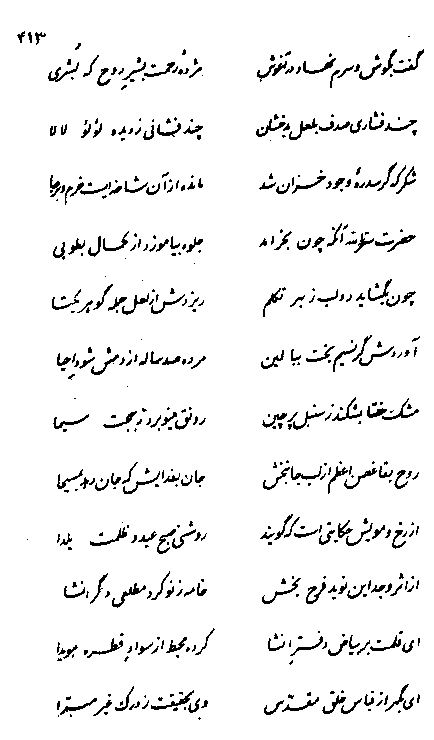 ۴۱۳
گفت بگوش و سرم نهاد در آغوش مژده رحمت بشیر روح که بُشری
چند فشاری صدف بلعل بدخشان چند فشانی ز دیده لؤلؤ لالا
شکر که گر سدرهٔ وجود خزان شد مانده از آن شاخه‌ایست خرم و برجا
حضرت آنکه چون بخرامد جلوه بیاموزد از کمال بطوبی
چون بگشاید دو لب ز بهر تکلم ریزدش از لعل جمله گوهر یکتا
آوردش گر نسیم بخت ببالین مرده صد ساله از دمش شود احیا
مشک ختا بشکند ز سنبل پرچین رونق مینو برد ز بهجت سیما
روح بقا غصن اعظم از لب جانبخش جان بفدایش که جان دمد بمسیحا
از رخ و مویش حکایتی است که گویند روشنی صبح عید و ظلمت یلدا
از اثر وجد این نوید فرح بخش خامه ز نو کرد مطلعی دگر انشا
ای قلمت بر بیاض دفتر انشا کرده محیط از سواد قطره هویدا
ای بگهر از قیاس خلق مقدّس وی بحقیقت ز درک غیر مبرّا